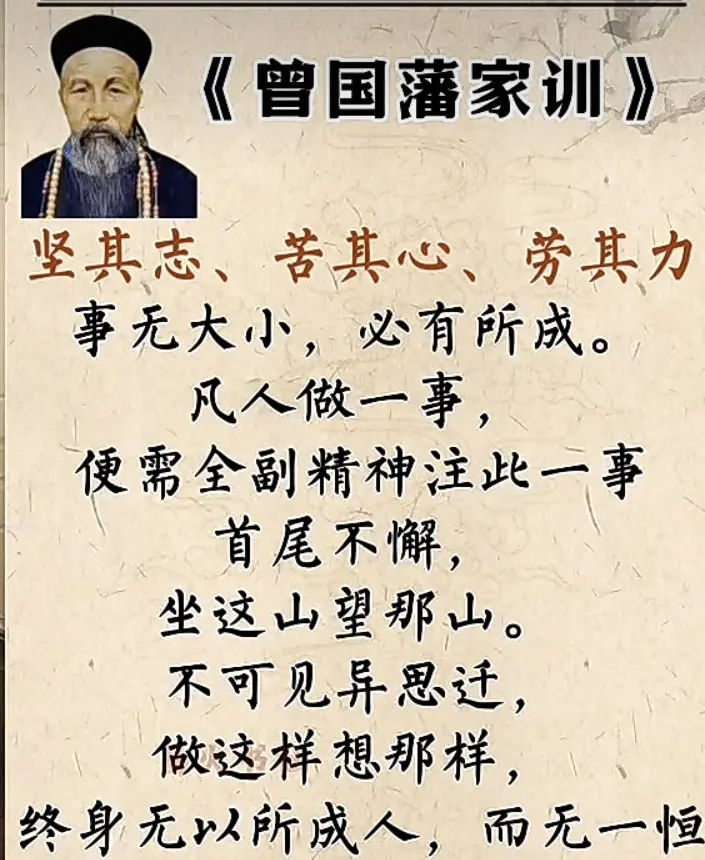 《曾国藩家训》
坚其志、苦其心、劳其力
事无大小，必有所成。
凡人做一事，
便需全副精神注此一事
首尾不懈，
坐这山望那山。
不可见异思迁，
做这样想那样，
终身无以所成人，而无一恒